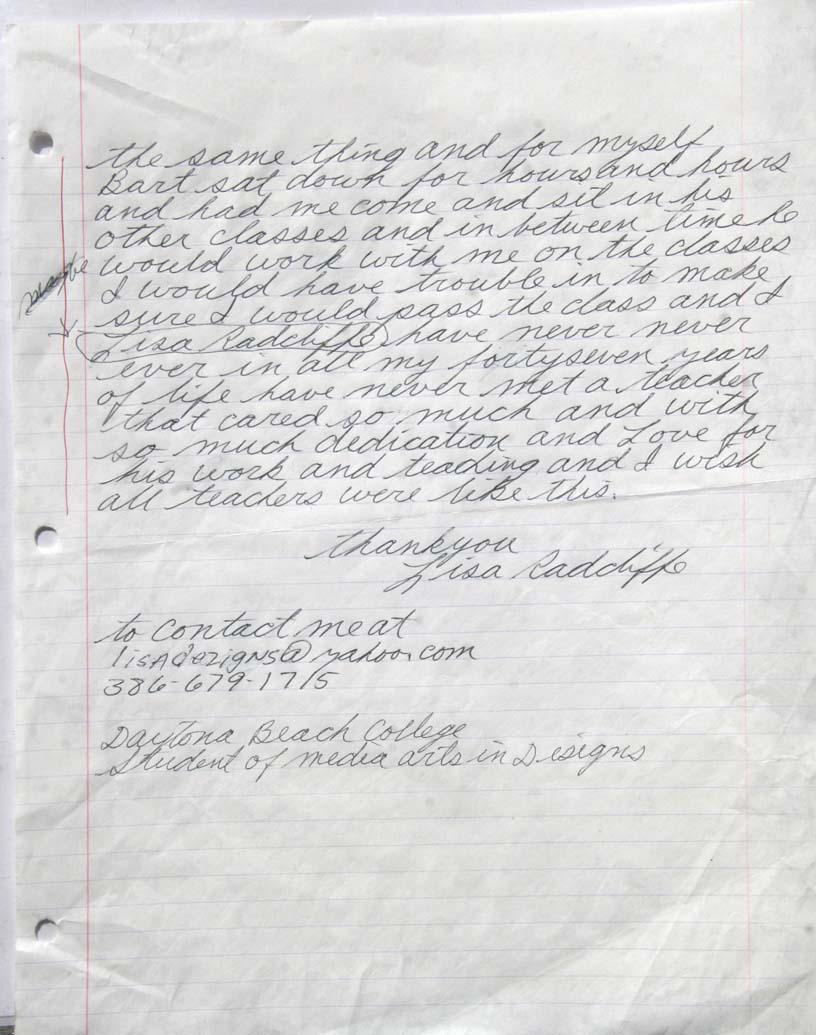 the same thing and for myself
Bart sat down for hours and hours
and had me come and sit in his
other classes and in between time he
would work with me on the classes
I would have trouble in to make
sure I would pass the class and I
Lisa Radcliffe, have never never
ever in all my fortyseven years
of life have never met a teacher
that cared so much and with
so much dedication and Love for
his work and teading and I wish
all teachers were like this.
thankyou
Lisa Radcliffe
to contact me at
lisAdezigns@yahoo.com
386-679-1715
Daytona Beach College
Student of media arts in Disigns